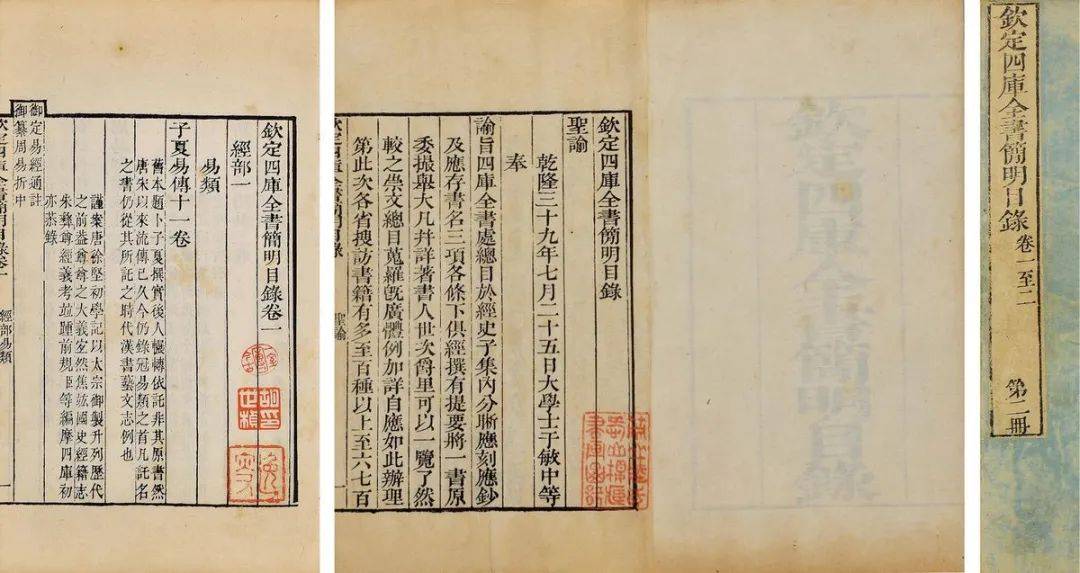 欽定四庫全書簡明目錄
卷一至二
第一冊
欽定四庫全書簡明目錄
聖諭
乾隆三十九年七月二十五日大學士于敏中等
奉
諭旨四庫全書處總目於經史子集內分晰應刻應鈔
及應存書名三項各條下俱經撰有提要將一書原
委撮舉大凡并詳著書人世次爵里可以一覽了然
較之崇文總目蒐羅旣廣體例加詳自應如此辦理
第此次各省搜訪書籍有多至百種以上至六七百
欽定四庫全書簡明目錄
聖諭
一
欽定四庫全書簡明目錄卷一
經部一
易類
子夏易傳十一卷
舊本題卜子夏撰實後人輾轉依託非其原書然
唐宋以來流傳已久今仍錄冠易類之首凡託名
之書仍從其所託之時代漢書藝文志例也
謹案唐徐堅初學記以太宗御製升列歷代
之前葢尊尊之大義焦竑國史經籍志
朱彝尊經義考竝踵前規臣等編摩四庫初
亦恭錄
御定易經通註
御纂周易折中
欽定四庫全書簡明目錄卷一
經部易類
一
胡印
世楨